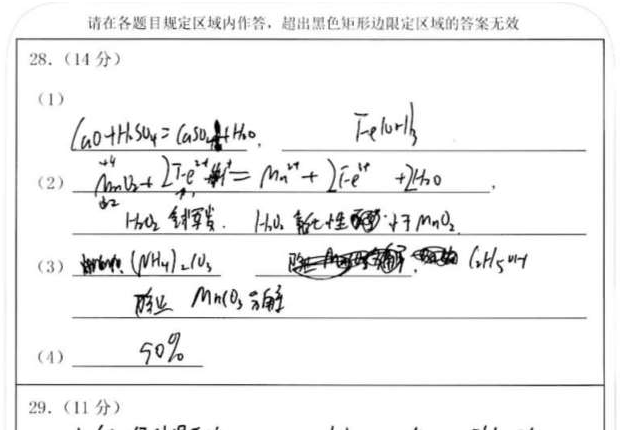 请在各题目规定区域内作答，超出黑色矩形边限定区域的答案无效
28.（14 分）
（1）
CaO+H₂SO₄=CaSO₄+H₂O, Fe(OH)₃
（2） MnO₂+ 2Fe²⁺ = Mn²⁺+ 2Fe³⁺ +2H₂O ,
H₂O₂ H₂O₂ 氧化性 小于MnO₂.
（3） (NH₄)₂CO₃ C₂H₅OH
防止 MnCO₃ 分解
（4） 50%
29.（11 分）